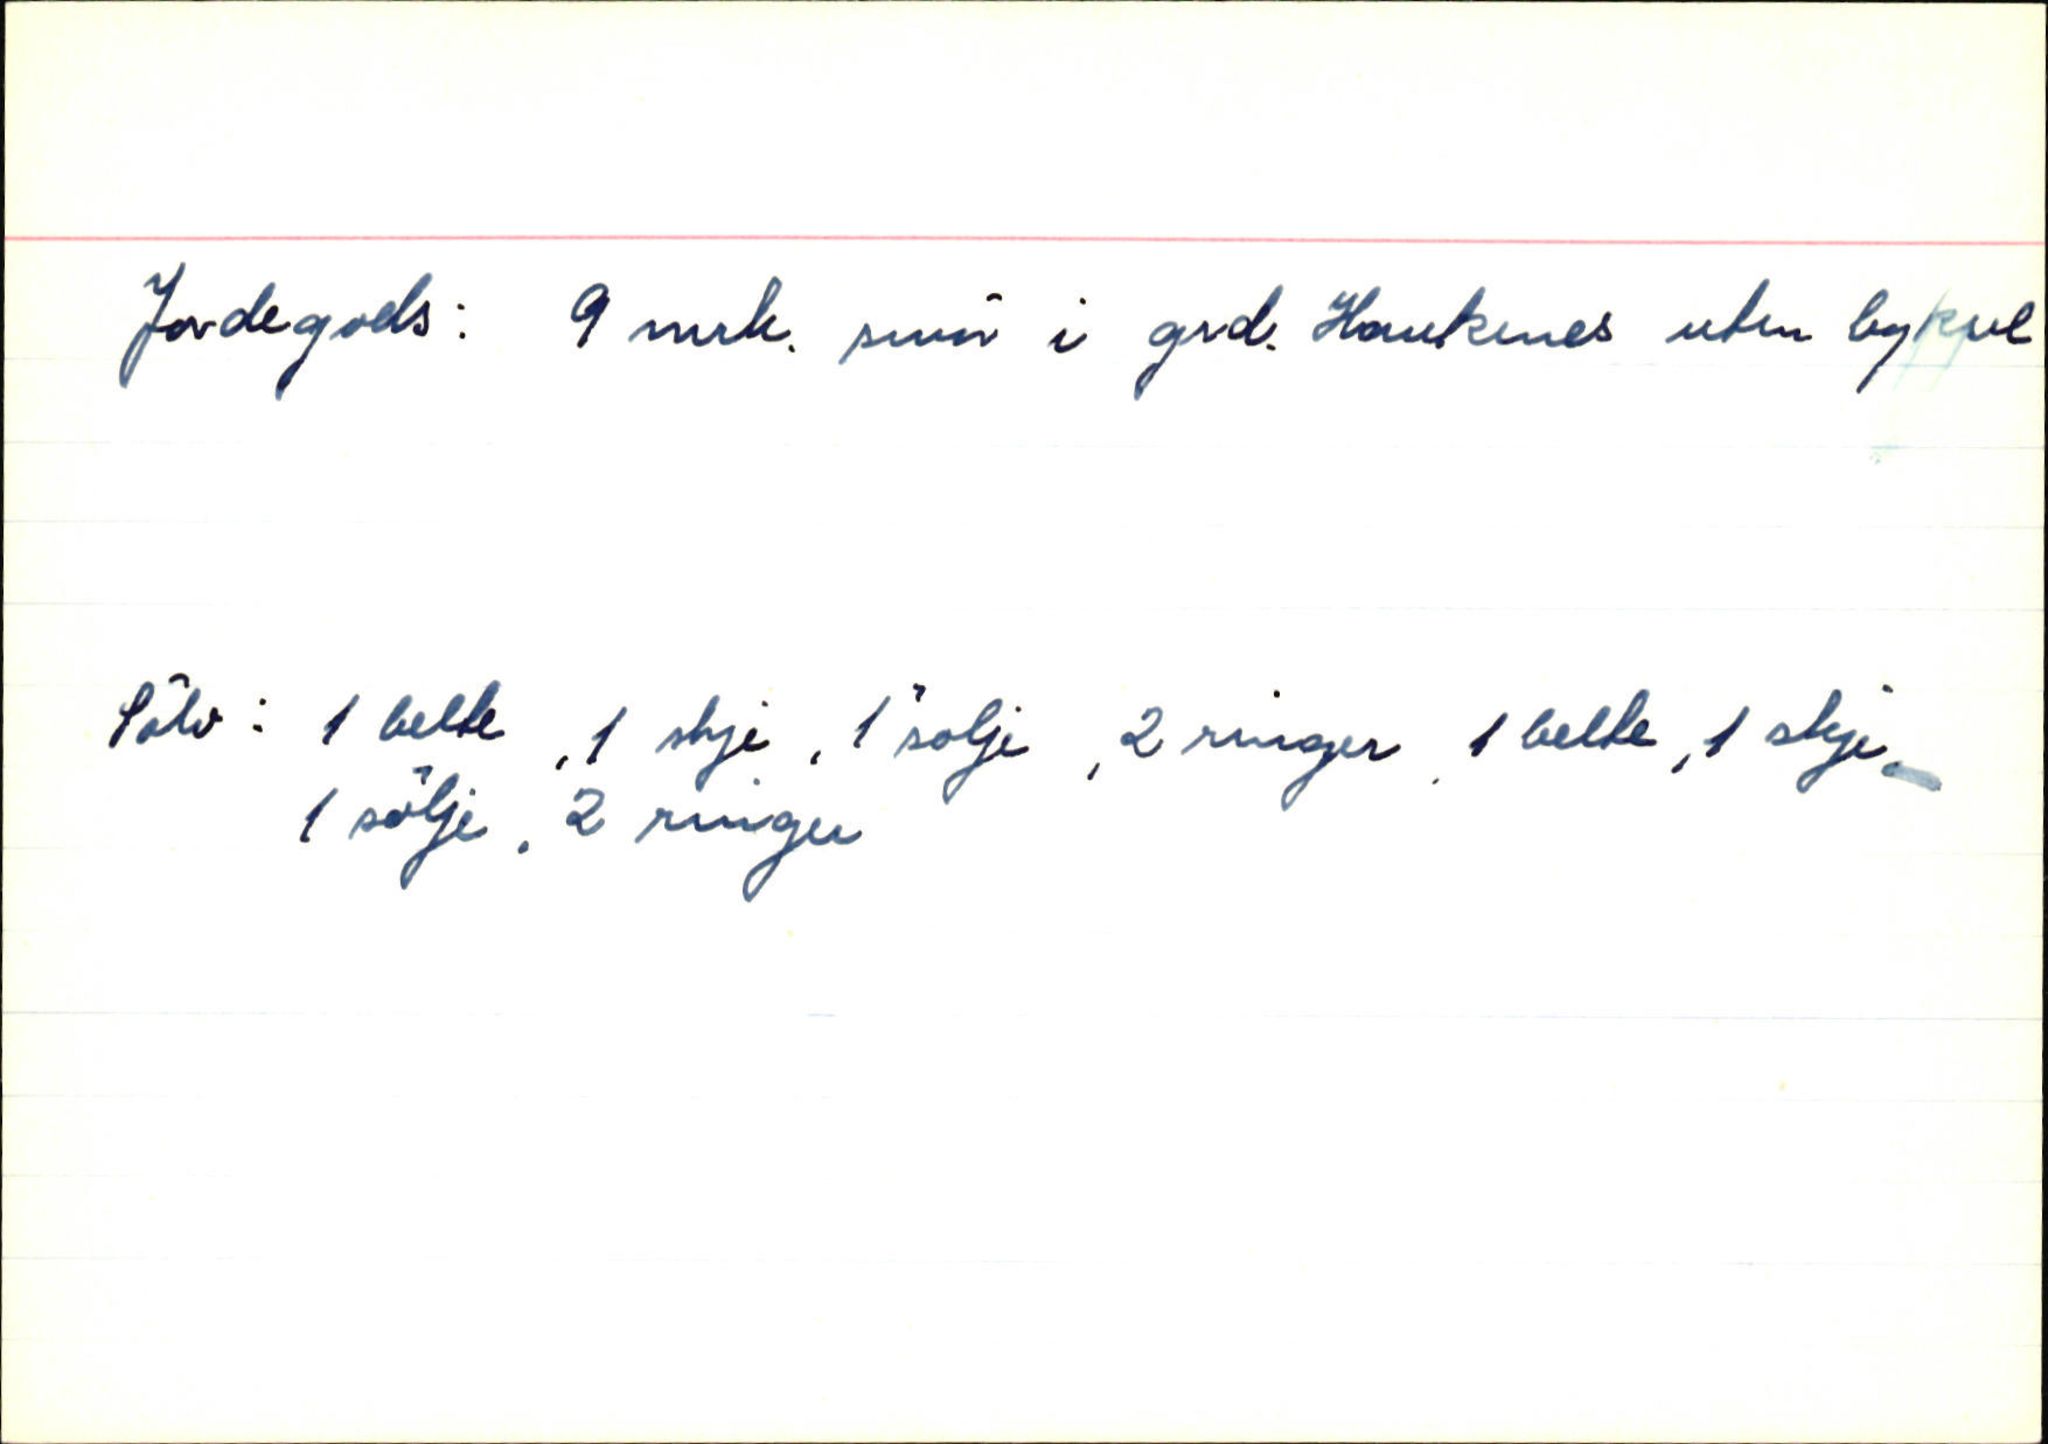 Jordegods: 9 mrk. smör i grd. Haukenes uten byksel
Sölv: 1 belte, 1 skje, 1 sölje, 2 ringer, 1 belte, 1 skje,
1 sölje, 2 ringer